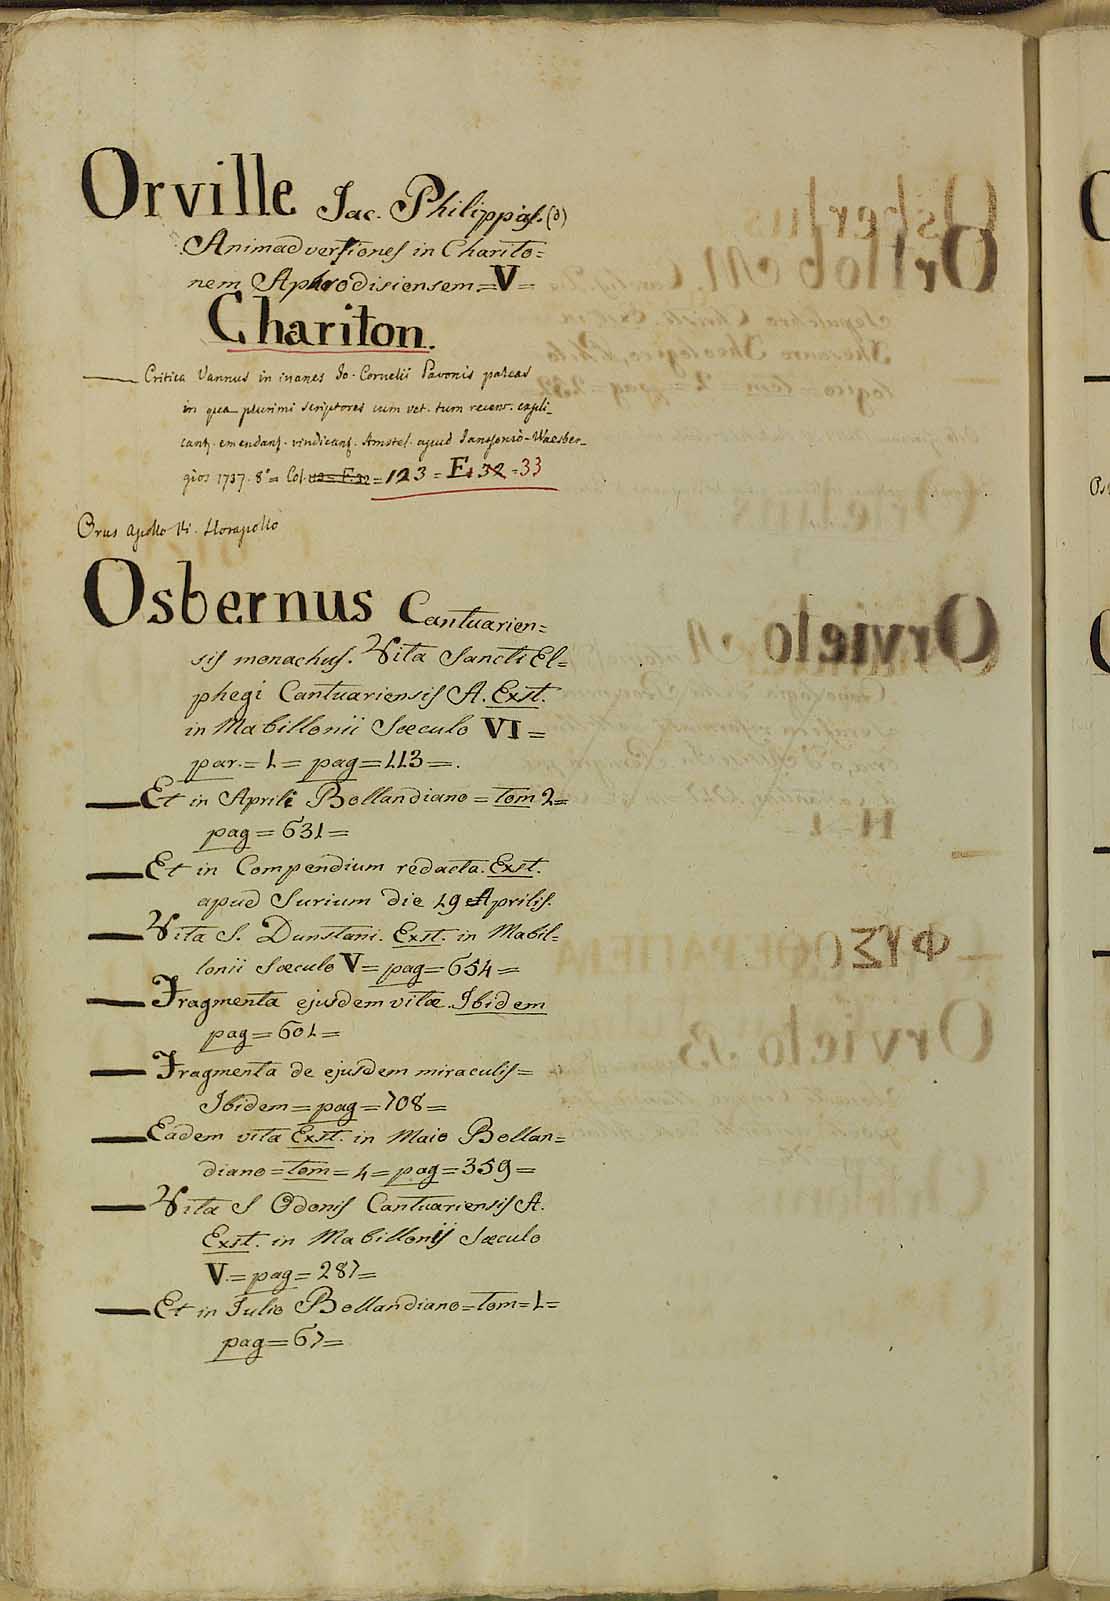 Orville Jac. Philippus. (d)
Animadversiones in Charito=
nem Aphrodisiensem.=V=
Chariton.
Critica Vannus in inanes Jo. Cornelii Pavonis paleas
in qua plurimi scriptores cum vet. tum recent. expli_
cant. emendant. vindicant. Amstel. apud Janssonio-Waesber_
gios 1737. 8°= Col. 113= F. 32 =123= F. 32 =33
Orus Apollo Vi. Horapollo
Osbernus Cantuarien=
sis monachus. Vita Sancti El=
phegi Cantuariensis A. Exst.
in Mabillonii Sæculo VI=
par.=1=pag=113=.
Et in Aprili Bollandiano=tom 2=
pag=631=
Et in Compendium redacta. Exst.
apud Surium die 19 Aprilis.
Vita S. Dunstani. Exst. in Mabil=
lonii Sæculo V=pag=654=
Fragmenta ejusdem vitæ. Ibidem
pag=601=
Fragmenta de ejusdem miraculis=
Ibidem=pag=708=
Eadem vita Exst. in Maio Bollan=
diano=tom=4=pag=359=
Vita S Odonis Cantuariensis A.
Exst. in Mabillonij Sæculo
V.=pag=287=
Et in Julio Bollandiano=tom=1=
pag=67=